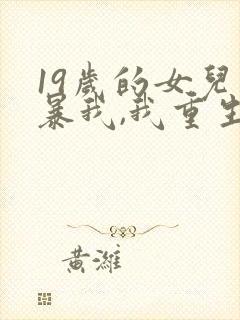 19歲的女兒
暴我,我重生
黃濰